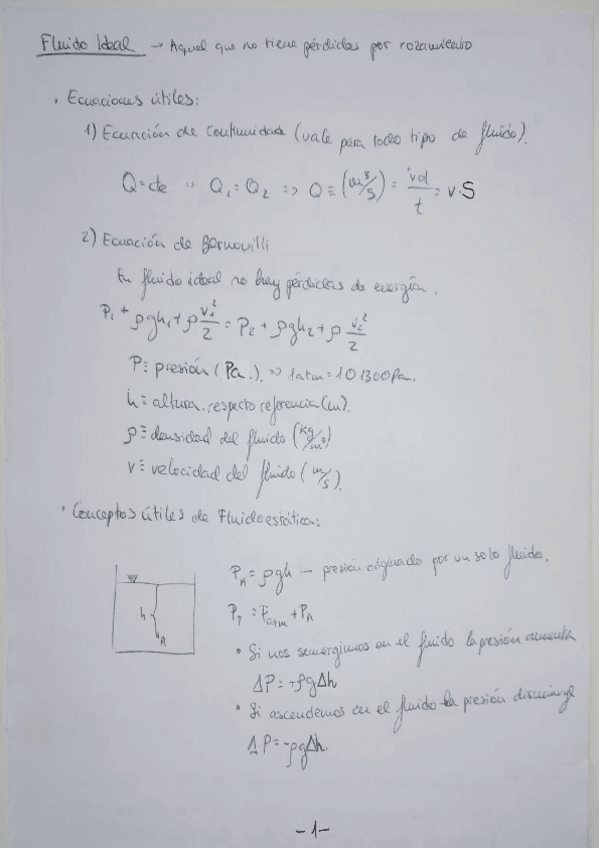 Fluido Ideal → Aquel que no tiene pérdidas por rozamiento
• Ecuaciones útiles:
1) Ecuación de continuidad (vale para todo tipo de fluido).
Q=cte ∵ Q₁=Q₂ => Q ≡ (m³/s) = vol/t = v·S
2) Ecuación de Bernouilli
En fluido ideal no hay pérdidas de energía.
P₁ + ρgh₁ + ρ v₁²/2 = P₂ + ρgh₂ + ρ v₂²/2
P ≡ presión (Pa.). => 1atm = 101300Pa.
h ≡ altura respecto referencia (m).
ρ ≡ densidad del fluido (kg/m³)
v ≡ velocidad del fluido (m/s).
• Conceptos útiles de Fluidoestática:
h
A
P_A = ρgh → presión originado por un solo fluido.
P_T = P_atm + P_A
• Si nos sumergimos en el fluido la presión aumenta
ΔP = +ρgΔh
• Si ascendemos en el fluido la presión disminuye
ΔP = -ρgΔh.
-1-